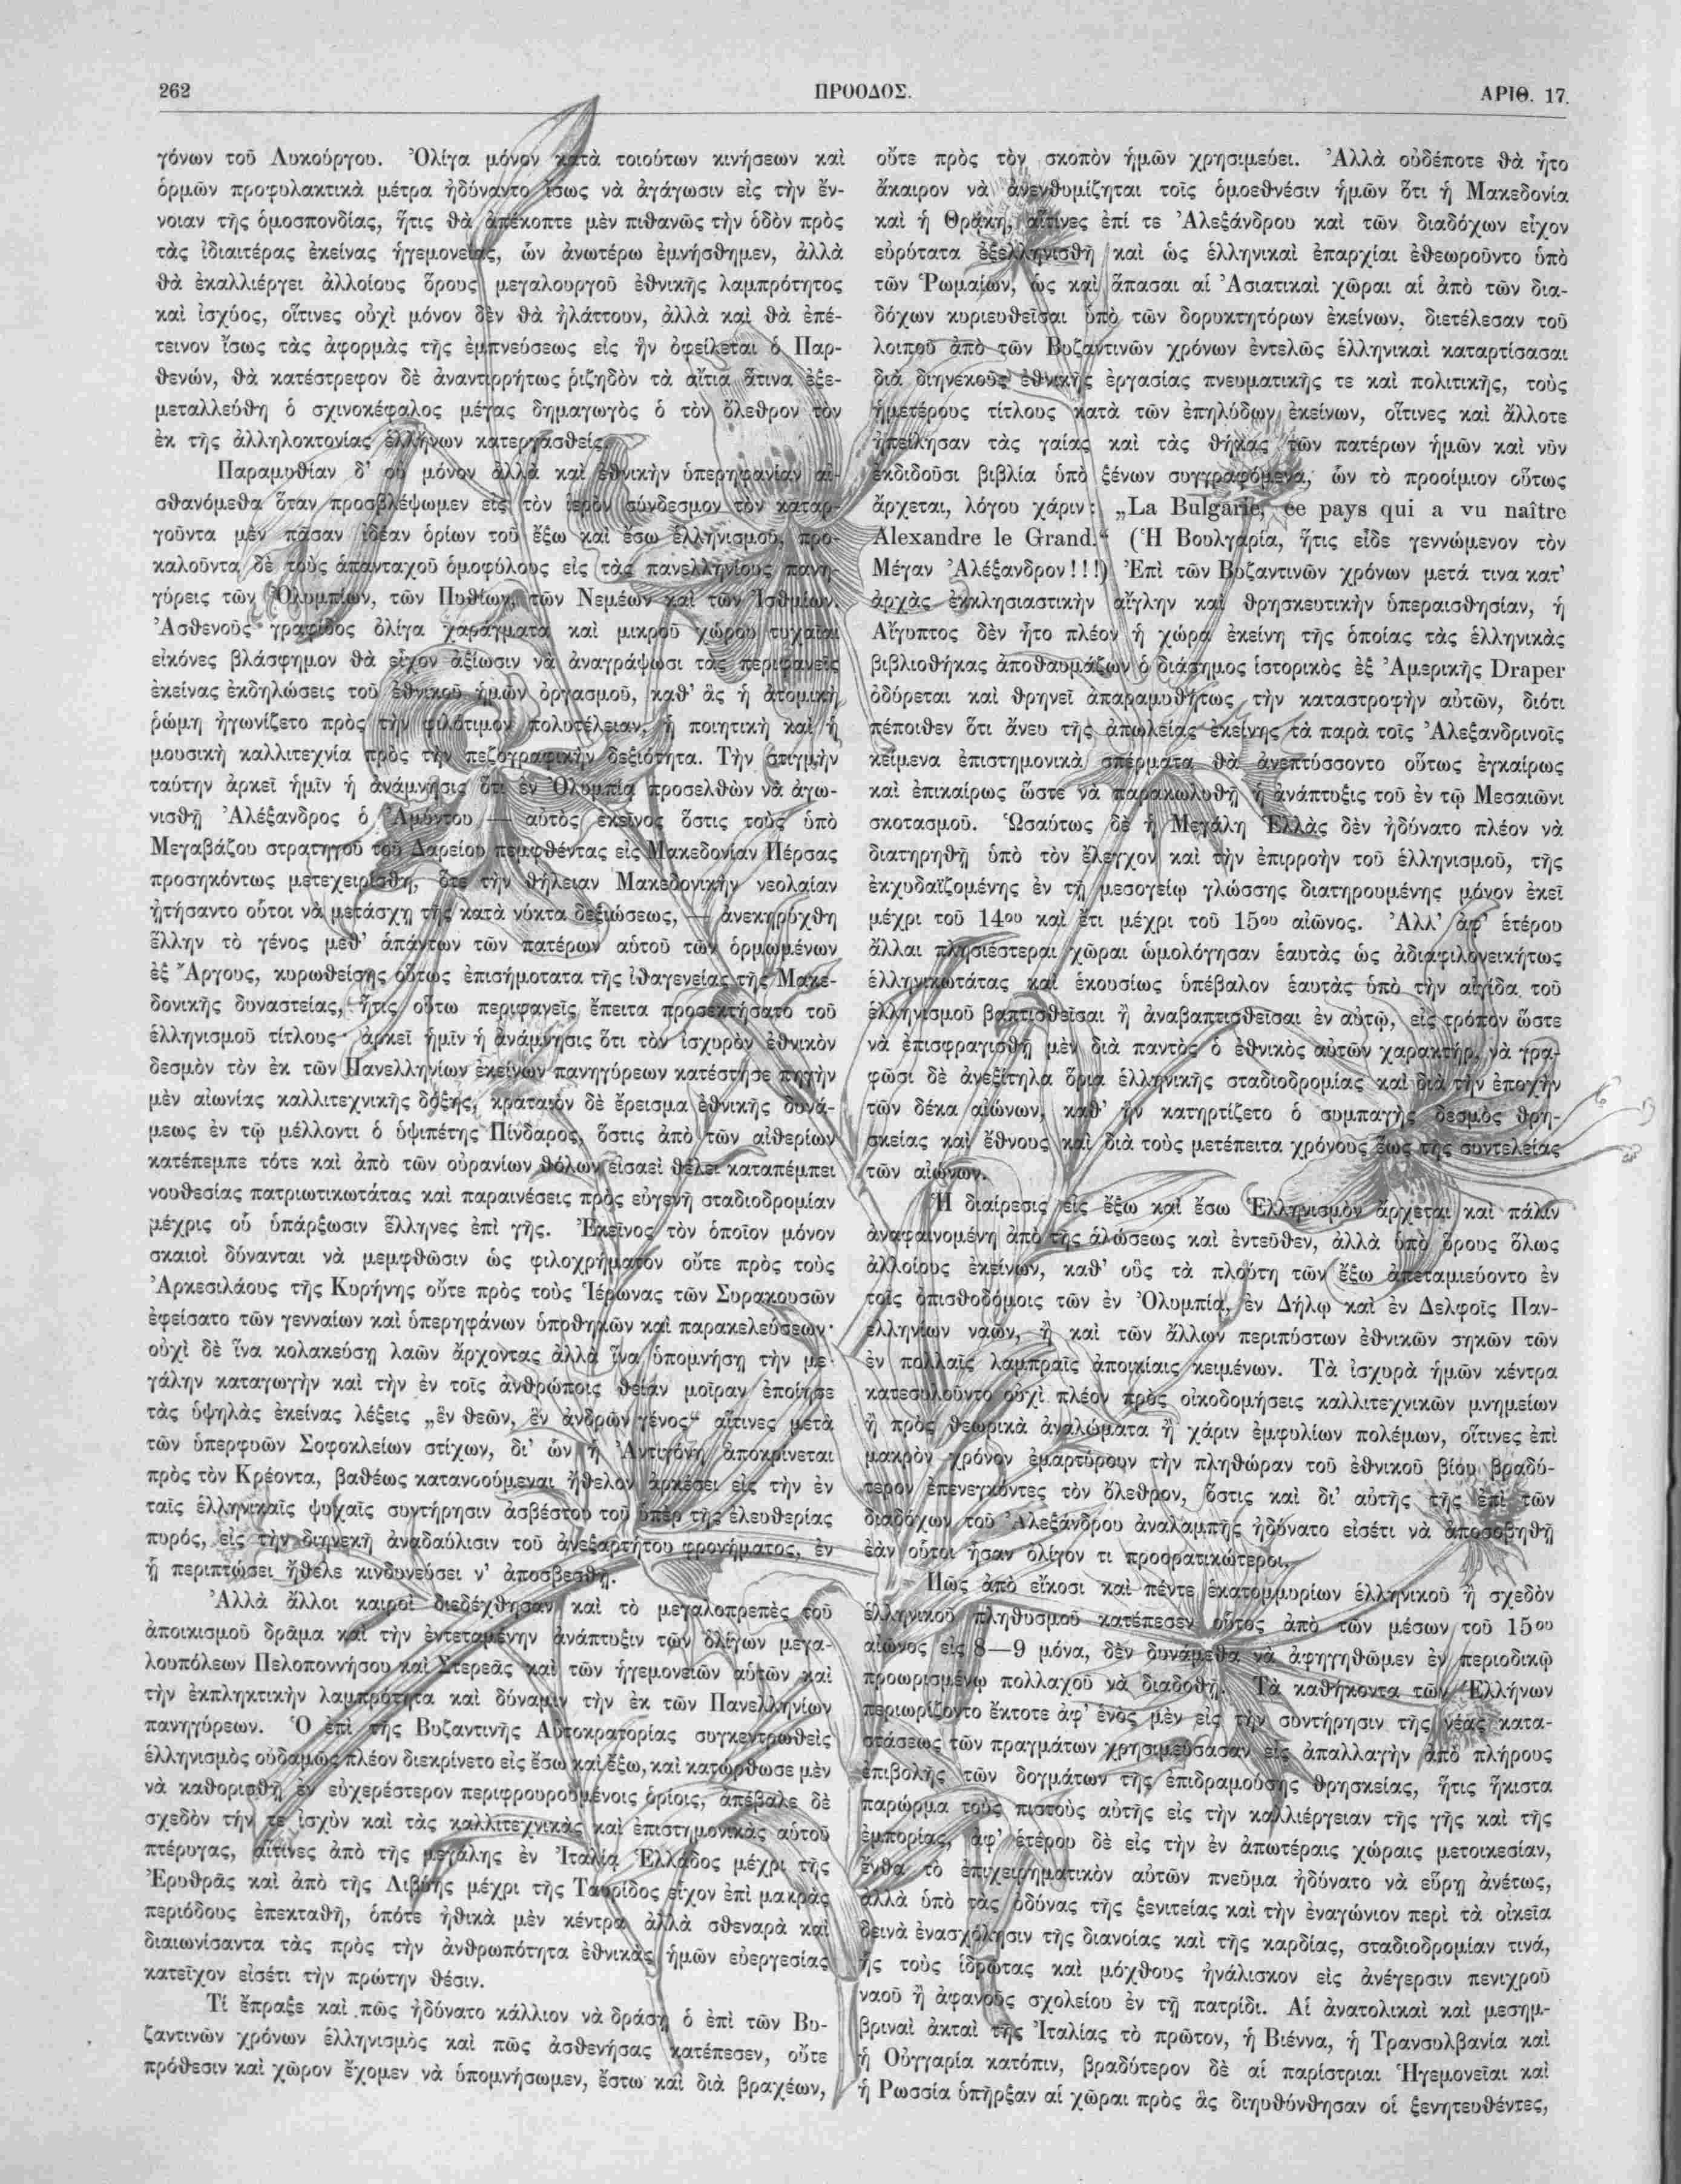 262
ΠΡΟΟΔΟΣ.
ΑΡΙΘ. 17.
γόνων τοῦ Λυκούργου. Ὀλίγα μόνον κατὰ τοιούτων κινήσεων καὶ
ὁρμῶν προφυλακτικὰ μέτρα ἠδύναντο ἴσως νὰ ἀγάγωσιν εἰς τὴν ἔν-
νοιαν τῆς ὁμοσπονδίας, ἥτις θὰ ἀπέκοπτε μὲν πιθανῶς τὴν ὁδὸν πρὸς
τὰς ἰδιαιτέρας ἐκείνας ἡγεμονείας, ὧν ἀνωτέρω ἐμνήσθημεν, ἀλλὰ
θὰ ἐκαλλιέργει ἀλλοίους ὅρους μεγαλουργοῦ ἐθνικῆς λαμπρότητος
καὶ ἰσχύος, οἵτινες οὐχὶ μόνον δὲν θὰ ἠλάττουν, ἀλλὰ καὶ θὰ ἐπέ-
τεινον ἴσως τὰς ἀφορμὰς τῆς ἐμπνεύσεως εἰς ἣν ὀφείλεται ὁ Παρ-
θενών, θὰ κατέστρεφον δὲ ἀναντιρρήτως ῥιζηδὸν τὰ αἴτια ἅτινα ἐξε-
μεταλλεύθη ὁ σχινοκέφαλος μέγας δημαγωγὸς ὁ τὸν ὄλεθρον τὸν
ἐκ τῆς ἀλληλοκτονίας ἑλλήνων κατεργασθείς.
Παραμυθίαν δ' οὐ μόνον ἀλλὰ καὶ ἐθνικὴν ὑπερηφανίαν αἰ-
σθανόμεθα ὅταν προσβλέψωμεν εἰς τὸν ἱερὸν σύνδεσμον τὸν καταρ-
γοῦντα μὲν πᾶσαν ἰδέαν ὁρίων τοῦ ἔξω καὶ ἔσω ἑλληνισμοῦ, προ-
καλοῦντα δὲ τοὺς ἁπανταχοῦ ὁμοφύλους εἰς τὰς πανελληνίους πανη-
γύρεις τῶν Ὀλυμπίων, τῶν Πυθίων, τῶν Νεμέων καὶ τῶν Ἰσθμίων.
Ἀσθενοῦς γραφίδος ὀλίγα χαράγματα καὶ μικροῦ χώρου τυχαῖαι
εἰκόνες βλάσφημον θὰ εἶχον ἀξίωσιν νὰ ἀναγράψωσι τὰς περιφανεῖς
ἐκείνας ἐκδηλώσεις τοῦ ἐθνικοῦ ἡμῶν ὀργασμοῦ, καθ' ἃς ἡ ἀτομικὴ
ῥώμη ἠγωνίζετο πρὸς τὴν φιλότιμον πολυτέλειαν, ἡ ποιητικὴ καὶ ἡ
μουσικὴ καλλιτεχνία πρὸς τὴν πεζογραφικὴν δεξιότητα. Τὴν στιγμὴν
ταύτην ἀρκεῖ ἡμῖν ἡ ἀνάμνησις ὅτι ἐν Ὀλυμπίᾳ προσελθὼν νὰ ἀγω-
νισθῇ Ἀλέξανδρος ὁ Ἀμύντου — αὐτὸς ἐκεῖνος ὅστις τοὺς ὑπὸ
Μεγαβάζου στρατηγοῦ τοῦ Δαρείου πεμφθέντας εἰς Μακεδονίαν Πέρσας
προσηκόντως μετεχειρίσθη, ὅτε τὴν θήλειαν Μακεδονικὴν νεολαίαν
ᾐτήσαντο οὗτοι νὰ μετάσχῃ τῆς κατὰ νύκτα δεξιώσεως, — ἀνεκηρύχθη
ἕλλην τὸ γένος μεθ' ἁπάντων τῶν πατέρων αὑτοῦ τῶν ὁρμωμένων
ἐξ Ἄργους, κυρωθείσης οὕτως ἐπισήμοτατα τῆς ἰθαγενείας τῆς Μακε-
δονικῆς δυναστείας, ἥτις οὕτω περιφανεῖς ἔπειτα προσεκτήσατο τοῦ
ἑλληνισμοῦ τίτλους· ἀρκεῖ ἡμῖν ἡ ἀνάμνησις ὅτι τὸν ἰσχυρὸν ἐθνικὸν
δεσμὸν τὸν ἐκ τῶν Πανελληνίων ἐκείνων πανηγύρεων κατέστησε πηγὴν
μὲν αἰωνίας καλλιτεχνικῆς δόξης, κραταιὸν δὲ ἔρεισμα ἐθνικῆς δυνά-
μεως ἐν τῷ μέλλοντι ὁ ὑψιπέτης Πίνδαρος, ὅστις ἀπὸ τῶν αἰθερίων
κατέπεμπε τότε καὶ ἀπὸ τῶν οὐρανίων θόλων εἰσαεὶ θέλει καταπέμπει
νουθεσίας πατριωτικωτάτας καὶ παραινέσεις πρὸς εὐγενῆ σταδιοδρομίαν
μέχρις οὗ ὑπάρξωσιν ἕλληνες ἐπὶ γῆς. Ἐκεῖνος τὸν ὁποῖον μόνον
σκαιοὶ δύνανται νὰ μεμφθῶσιν ὡς φιλοχρήματον οὔτε πρὸς τοὺς
Ἀρκεσιλάους τῆς Κυρήνης οὔτε πρὸς τοὺς Ἱέρωνας τῶν Συρακουσῶν
ἐφείσατο τῶν γενναίων καὶ ὑπερηφάνων ὑποθηκῶν καὶ παρακελεύσεων·
οὐχὶ δὲ ἵνα κολακεύσῃ λαῶν ἄρχοντας ἀλλὰ ἵνα ὑπομνήσῃ τὴν με-
γάλην καταγωγὴν καὶ τὴν ἐν τοῖς ἀνθρώποις θείαν μοῖραν ἐποίησε
τὰς ὑψηλὰς ἐκείνας λέξεις „ἓν θεῶν, ἓν ἀνδρῶν γένος“ αἵτινες μετὰ
τῶν ὑπερφυῶν Σοφοκλείων στίχων, δι' ὧν ἡ Ἀντιγόνη ἀποκρίνεται
πρὸς τὸν Κρέοντα, βαθέως κατανοούμεναι ἤθελον ἀρκέσει εἰς τὴν ἐν
ταῖς ἑλληνικαῖς ψυχαῖς συντήρησιν ἀσβέστου τοῦ ὑπὲρ τῆς ἐλευθερίας
πυρός, εἰς τὴν διηνεκῆ ἀναδαύλισιν τοῦ ἀνεξαρτήτου φρονήματος, ἐν
ᾗ περιπτώσει ἤθελε κινδυνεύσει ν' ἀποσβεσθῇ.
Ἀλλὰ ἄλλοι καιροὶ διεδέχθησαν καὶ τὸ μεγαλοπρεπὲς τοῦ
ἀποικισμοῦ δρᾶμα καὶ τὴν ἐντεταμένην ἀνάπτυξιν τῶν ὀλίγων μεγα-
λουπόλεων Πελοποννήσου καὶ Στερεᾶς καὶ τῶν ἡγεμονειῶν αὑτῶν καὶ
τὴν ἐκπληκτικὴν λαμπρότητα καὶ δύναμιν τὴν ἐκ τῶν Πανελληνίων
πανηγύρεων. Ὁ ἐπὶ τῆς Βυζαντινῆς Αὐτοκρατορίας συγκεντρωθεὶς
ἑλληνισμὸς οὐδαμῶς πλέον διεκρίνετο εἰς ἔσω καὶ ἔξω, καὶ κατώρθωσε μὲν
νὰ καθορισθῇ ἐν εὐχερέστερον περιφρουρουμένοις ὁρίοις, ἀπέβαλε δὲ
σχεδὸν τήν τε ἰσχὺν καὶ τὰς καλλιτεχνικὰς καὶ ἐπιστημονικὰς αὑτοῦ
πτέρυγας, αἵτινες ἀπὸ τῆς μεγάλης ἐν Ἰταλίᾳ Ἑλλάδος μέχρι τῆς
Ἐρυθρᾶς καὶ ἀπὸ τῆς Λιβύης μέχρι τῆς Ταυρίδος εἶχον ἐπὶ μακρὰς
περιόδους ἐπεκταθῆ, ὁπότε ἠθικὰ μὲν κέντρα ἀλλὰ σθεναρὰ καὶ
διαιωνίσαντα τὰς πρὸς τὴν ἀνθρωπότητα ἐθνικὰς ἡμῶν εὐεργεσίας
κατεῖχον εἰσέτι τὴν πρώτην θέσιν.
Τί ἔπραξε καὶ πῶς ἠδύνατο κάλλιον νὰ δράσῃ ὁ ἐπὶ τῶν Βυ-
ζαντινῶν χρόνων ἑλληνισμὸς καὶ πῶς ἀσθενήσας κατέπεσεν, οὔτε
πρόθεσιν καὶ χῶρον ἔχομεν νὰ ὑπομνήσωμεν, ἔστω καὶ διὰ βραχέων,
οὔτε πρὸς τὸν σκοπὸν ἡμῶν χρησιμεύει. Ἀλλὰ οὐδέποτε θὰ ἦτο
ἄκαιρον νὰ ἀνενθυμίζηται τοῖς ὁμοεθνέσιν ἡμῶν ὅτι ἡ Μακεδονία
καὶ ἡ Θρᾴκη, αἵτινες ἐπί τε Ἀλεξάνδρου καὶ τῶν διαδόχων εἶχον
εὐρύτατα ἐξελληνισθῆ καὶ ὡς ἑλληνικαὶ ἐπαρχίαι ἐθεωροῦντο ὑπὸ
τῶν Ῥωμαίων, ὡς καὶ ἅπασαι αἱ Ἀσιατικαὶ χῶραι αἱ ἀπὸ τῶν δια-
δόχων κυριευθεῖσαι ὑπὸ τῶν δορυκτητόρων ἐκείνων, διετέλεσαν τοῦ
λοιποῦ ἀπὸ τῶν Βυζαντινῶν χρόνων ἐντελῶς ἑλληνικαὶ καταρτίσασαι
διὰ διηνεκοῦς ἐθνικῆς ἐργασίας πνευματικῆς τε καὶ πολιτικῆς, τοὺς
ἡμετέρους τίτλους κατὰ τῶν ἐπηλύδων ἐκείνων, οἵτινες καὶ ἄλλοτε
ἠπείλησαν τὰς γαίας καὶ τὰς θήκας τῶν πατέρων ἡμῶν καὶ νῦν
ἐκδιδοῦσι βιβλία ὑπὸ ξένων συγγραφόμενα, ὧν τὸ προοίμιον οὕτως
ἄρχεται, λόγου χάριν: „La Bulgarie, ce pays qui a vu naître
Alexandre le Grand.“ (Ἡ Βουλγαρία, ἥτις εἶδε γεννώμενον τὸν
Μέγαν Ἀλέξανδρον!!!) Ἐπὶ τῶν Βυζαντινῶν χρόνων μετά τινα κατ'
ἀρχὰς ἐκκλησιαστικὴν αἴγλην καὶ θρησκευτικὴν ὑπεραισθησίαν, ἡ
Αἴγυπτος δὲν ἦτο πλέον ἡ χώρα ἐκείνη τῆς ὁποίας τὰς ἑλληνικὰς
βιβλιοθήκας ἀποθαυμάζων ὁ διάσημος ἱστορικὸς ἐξ Ἀμερικῆς Draper
ὀδύρεται καὶ θρηνεῖ ἀπαραμυθήτως τὴν καταστροφὴν αὐτῶν, διότι
πέποιθεν ὅτι ἄνευ τῆς ἀπωλείας ἐκείνης τὰ παρὰ τοῖς Ἀλεξανδρινοῖς
κείμενα ἐπιστημονικὰ σπέρματα θὰ ἀνεπτύσσοντο οὕτως ἐγκαίρως
καὶ ἐπικαίρως ὥστε νὰ παρακωλυθῇ ἡ ἀνάπτυξις τοῦ ἐν τῷ Μεσαιῶνι
σκοτασμοῦ. Ὡσαύτως δὲ ἡ Μεγάλη Ἑλλὰς δὲν ἠδύνατο πλέον νὰ
διατηρηθῇ ὑπὸ τὸν ἔλεγχον καὶ τὴν ἐπιρροὴν τοῦ ἑλληνισμοῦ, τῆς
ἐκχυδαϊζομένης ἐν τῇ μεσογείῳ γλώσσης διατηρουμένης μόνον ἐκεῖ
μέχρι τοῦ 14ου καὶ ἔτι μέχρι τοῦ 15ου αἰῶνος. Ἀλλ' ἀφ' ἑτέρου
ἄλλαι πλησιέστεραι χῶραι ὡμολόγησαν ἑαυτὰς ὡς ἀδιαφιλονεικήτως
ἑλληνικωτάτας καὶ ἑκουσίως ὑπέβαλον ἑαυτὰς ὑπὸ τὴν αἰγίδα τοῦ
ἑλληνισμοῦ βαπτισθεῖσαι ἢ ἀναβαπτισθεῖσαι ἐν αὐτῷ, εἰς τρόπον ὥστε
νὰ ἐπισφραγισθῇ μὲν διὰ παντὸς ὁ ἐθνικὸς αὐτῶν χαρακτήρ, νὰ γρα-
φῶσι δὲ ἀνεξίτηλα ὅρια ἑλληνικῆς σταδιοδρομίας καὶ διὰ τὴν ἐποχὴν
τῶν δέκα αἰώνων, καθ' ἣν κατηρτίζετο ὁ συμπαγὴς δεσμὸς θρη-
σκείας καὶ ἔθνους καὶ διὰ τοὺς μετέπειτα χρόνους ἕως τῆς συντελείας
τῶν αἰώνων.
Ἡ διαίρεσις εἰς ἔξω καὶ ἔσω Ἑλληνισμὸν ἄρχεται καὶ πάλιν
ἀναφαινομένη ἀπὸ τῆς ἁλώσεως καὶ ἐντεῦθεν, ἀλλὰ ὑπὸ ὅρους ὅλως
ἀλλοίους ἐκείνων, καθ' οὓς τὰ πλούτη τῶν ἔξω ἀπεταμιεύοντο ἐν
τοῖς ὀπισθοδόμοις τῶν ἐν Ὀλυμπίᾳ, ἐν Δήλῳ καὶ ἐν Δελφοῖς Παν-
ελληνίων ναῶν, ἢ καὶ τῶν ἄλλων περιπύστων ἐθνικῶν σηκῶν τῶν
ἐν πολλαῖς λαμπραῖς ἀποικίαις κειμένων. Τὰ ἰσχυρὰ ἡμῶν κέντρα
κατεσυλοῦντο οὐχὶ πλέον πρὸς οἰκοδομήσεις καλλιτεχνικῶν μνημείων
ἢ πρὸς θεωρικὰ ἀναλώματα ἢ χάριν ἐμφυλίων πολέμων, οἵτινες ἐπὶ
μακρὸν χρόνον ἐμαρτύρουν τὴν πληθώραν τοῦ ἐθνικοῦ βίου βραδύ-
τερον ἐπενεγκόντες τὸν ὄλεθρον, ὅστις καὶ δι' αὐτῆς τῆς ἐπὶ τῶν
διαδόχων τοῦ Ἀλεξάνδρου ἀναλαμπῆς ἠδύνατο εἰσέτι νὰ ἀποσοβηθῇ
ἐὰν οὗτοι ἦσαν ὀλίγον τι προορατικώτεροι.
Πῶς ἀπὸ εἴκοσι καὶ πέντε ἑκατομμυρίων ἑλληνικοῦ ἢ σχεδὸν
ἑλληνικοῦ πληθυσμοῦ κατέπεσεν οὗτος ἀπὸ τῶν μέσων τοῦ 15ου
αἰῶνος εἰς 8—9 μόνα, δὲν δυνάμεθα νὰ ἀφηγηθῶμεν ἐν περιοδικῷ
προωρισμένῳ πολλαχοῦ νὰ διαδοθῇ. Τὰ καθήκοντα τῶν Ἑλλήνων
περιωρίζοντο ἔκτοτε ἀφ' ἑνὸς μὲν εἰς τὴν συντήρησιν τῆς νέας κατα-
στάσεως τῶν πραγμάτων χρησιμεύσασαν εἰς ἀπαλλαγὴν ἀπὸ πλήρους
ἐπιβολῆς τῶν δογμάτων τῆς ἐπιδραμούσης θρησκείας, ἥτις ἥκιστα
παρώρμα τοὺς πιστοὺς αὐτῆς εἰς τὴν καλλιέργειαν τῆς γῆς καὶ τῆς
ἐμπορίας, ἀφ' ἑτέρου δὲ εἰς τὴν ἐν ἀπωτέραις χώραις μετοικεσίαν,
ἔνθα τὸ ἐπιχειρηματικὸν αὐτῶν πνεῦμα ἠδύνατο νὰ εὕρῃ ἀνέτως,
ἀλλὰ ὑπὸ τὰς ὀδύνας τῆς ξενιτείας καὶ τὴν ἐναγώνιον περὶ τὰ οἰκεῖα
δεινὰ ἐνασχόλησιν τῆς διανοίας καὶ τῆς καρδίας, σταδιοδρομίαν τινά,
ἧς τοὺς ἱδρῶτας καὶ μόχθους ἠνάλισκον εἰς ἀνέγερσιν πενιχροῦ
ναοῦ ἢ ἀφανοῦς σχολείου ἐν τῇ πατρίδι. Αἱ ἀνατολικαὶ καὶ μεσημ-
βριναὶ ἀκταὶ τῆς Ἰταλίας τὸ πρῶτον, ἡ Βιέννα, ἡ Τρανσυλβανία καὶ
ἡ Οὐγγαρία κατόπιν, βραδύτερον δὲ αἱ παρίστριαι Ἡγεμονεῖαι καὶ
ἡ Ρωσσία ὑπῆρξαν αἱ χῶραι πρὸς ἃς διηυθύνθησαν οἱ ξενητευθέντες,